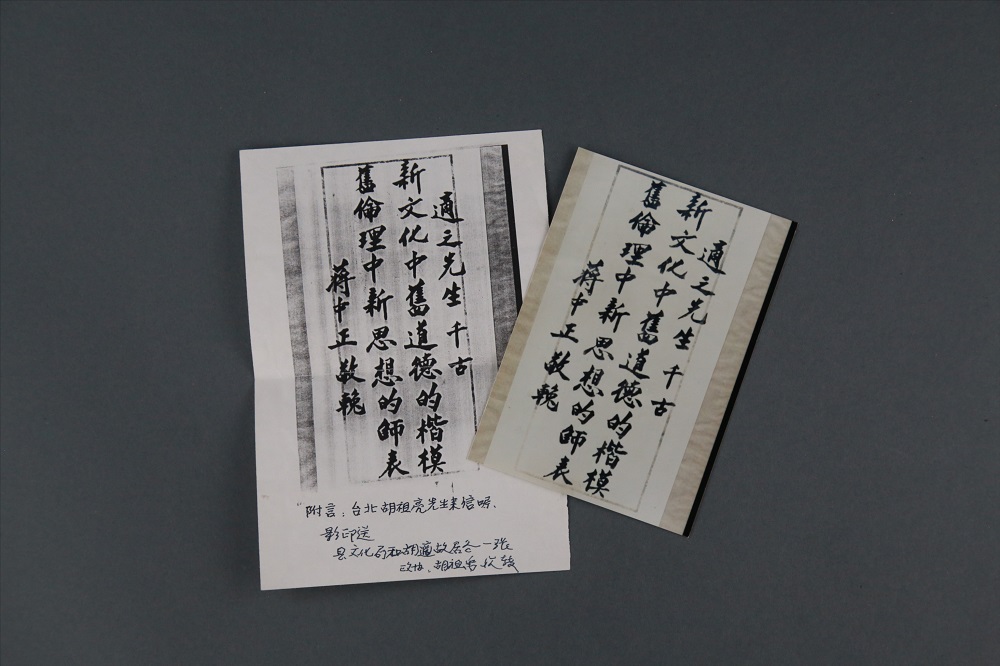 適之先生千古
新文化中舊道德的楷模
舊倫理中新思想的師表
蔣中正敬輓
附言：台北胡祖亮先生来信嘱、
影印送
县文化局和胡適故居各一张
胡祖
適之先生千古
新文化中舊道德的楷模
舊倫理中新思想的師表
蔣中正敬輓